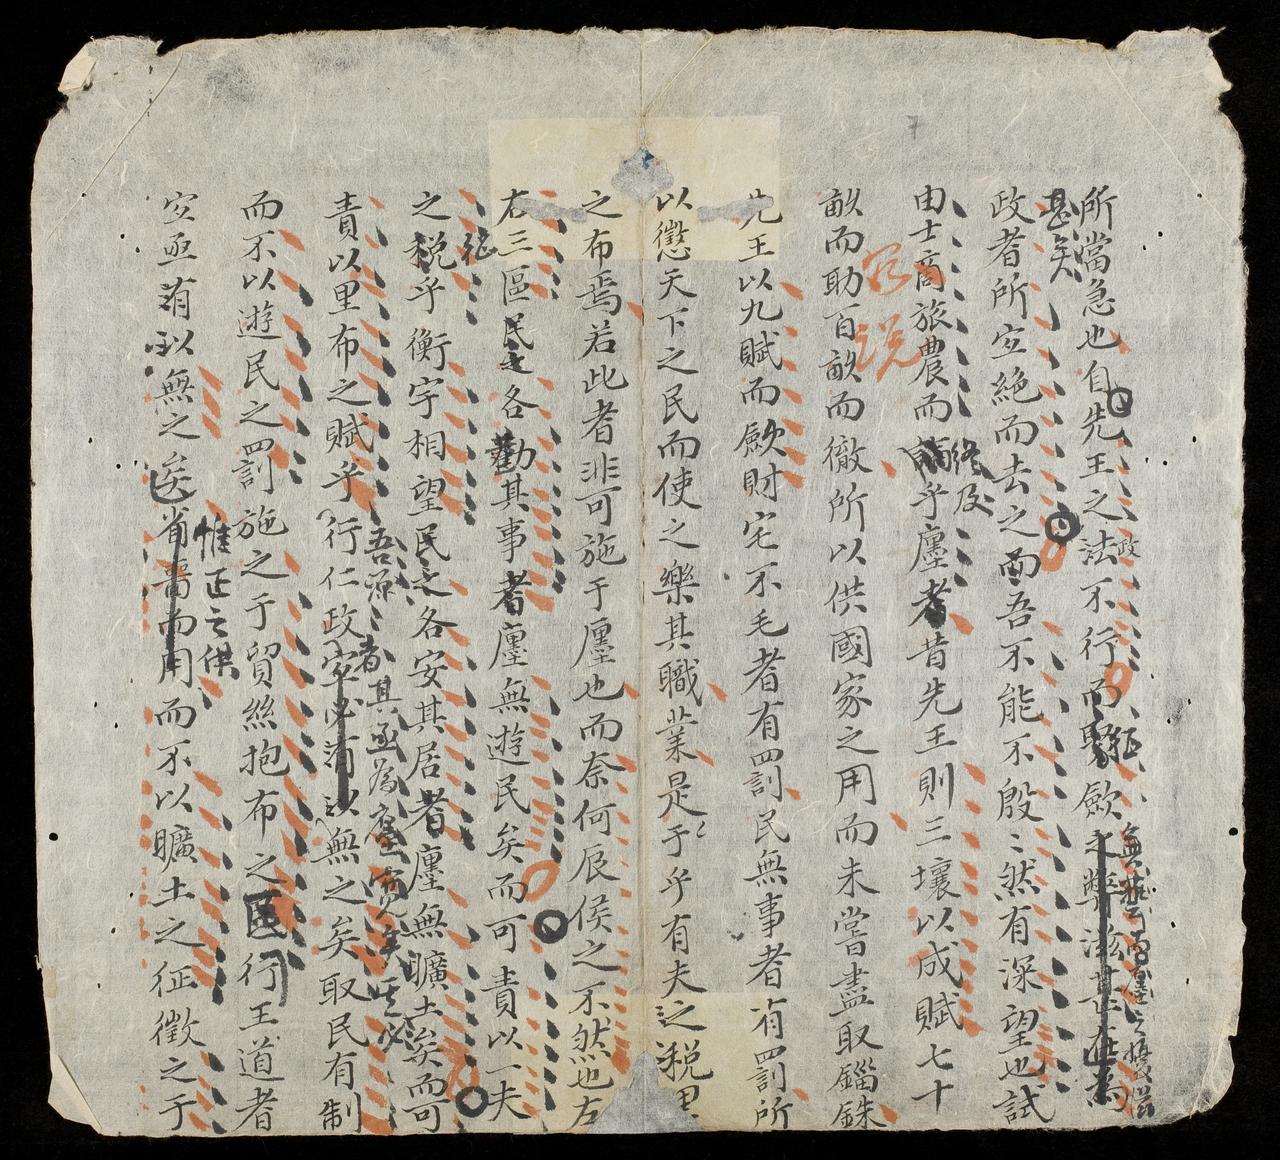 所當急也自先王之法不行而歛之弊滋甚在為
甚矣
政者所宜絶而去之而吾不能不殷〻然有深望也試
由士商旅農而乎廛者昔先王則三壤以成賦七十
終及
畝而助百畝而徹所以供國家之用而未嘗盡取錙銖
先王以九賦而歛財宅不毛者有罰民無事者有罰所
以懲天下之民而使之樂其職業是于乎有夫之税里
之布焉若此者非可施于廛也而奈何辰侯之不然也左
右三區民之各勸其事者廛無遊民矣而可責以一夫
征
之税乎衡宇相望民之各安其居者廛無曠土矣而可
責以里布之賦乎行仁政宜必有以無之矣取民有制
吾源者其亟為廛寬矣
而不以遊民之罰施之于貿絲抱布之民行王道者
惟正之供
宜亟有以無之矣省嗇而用而不以曠土之征徵之于